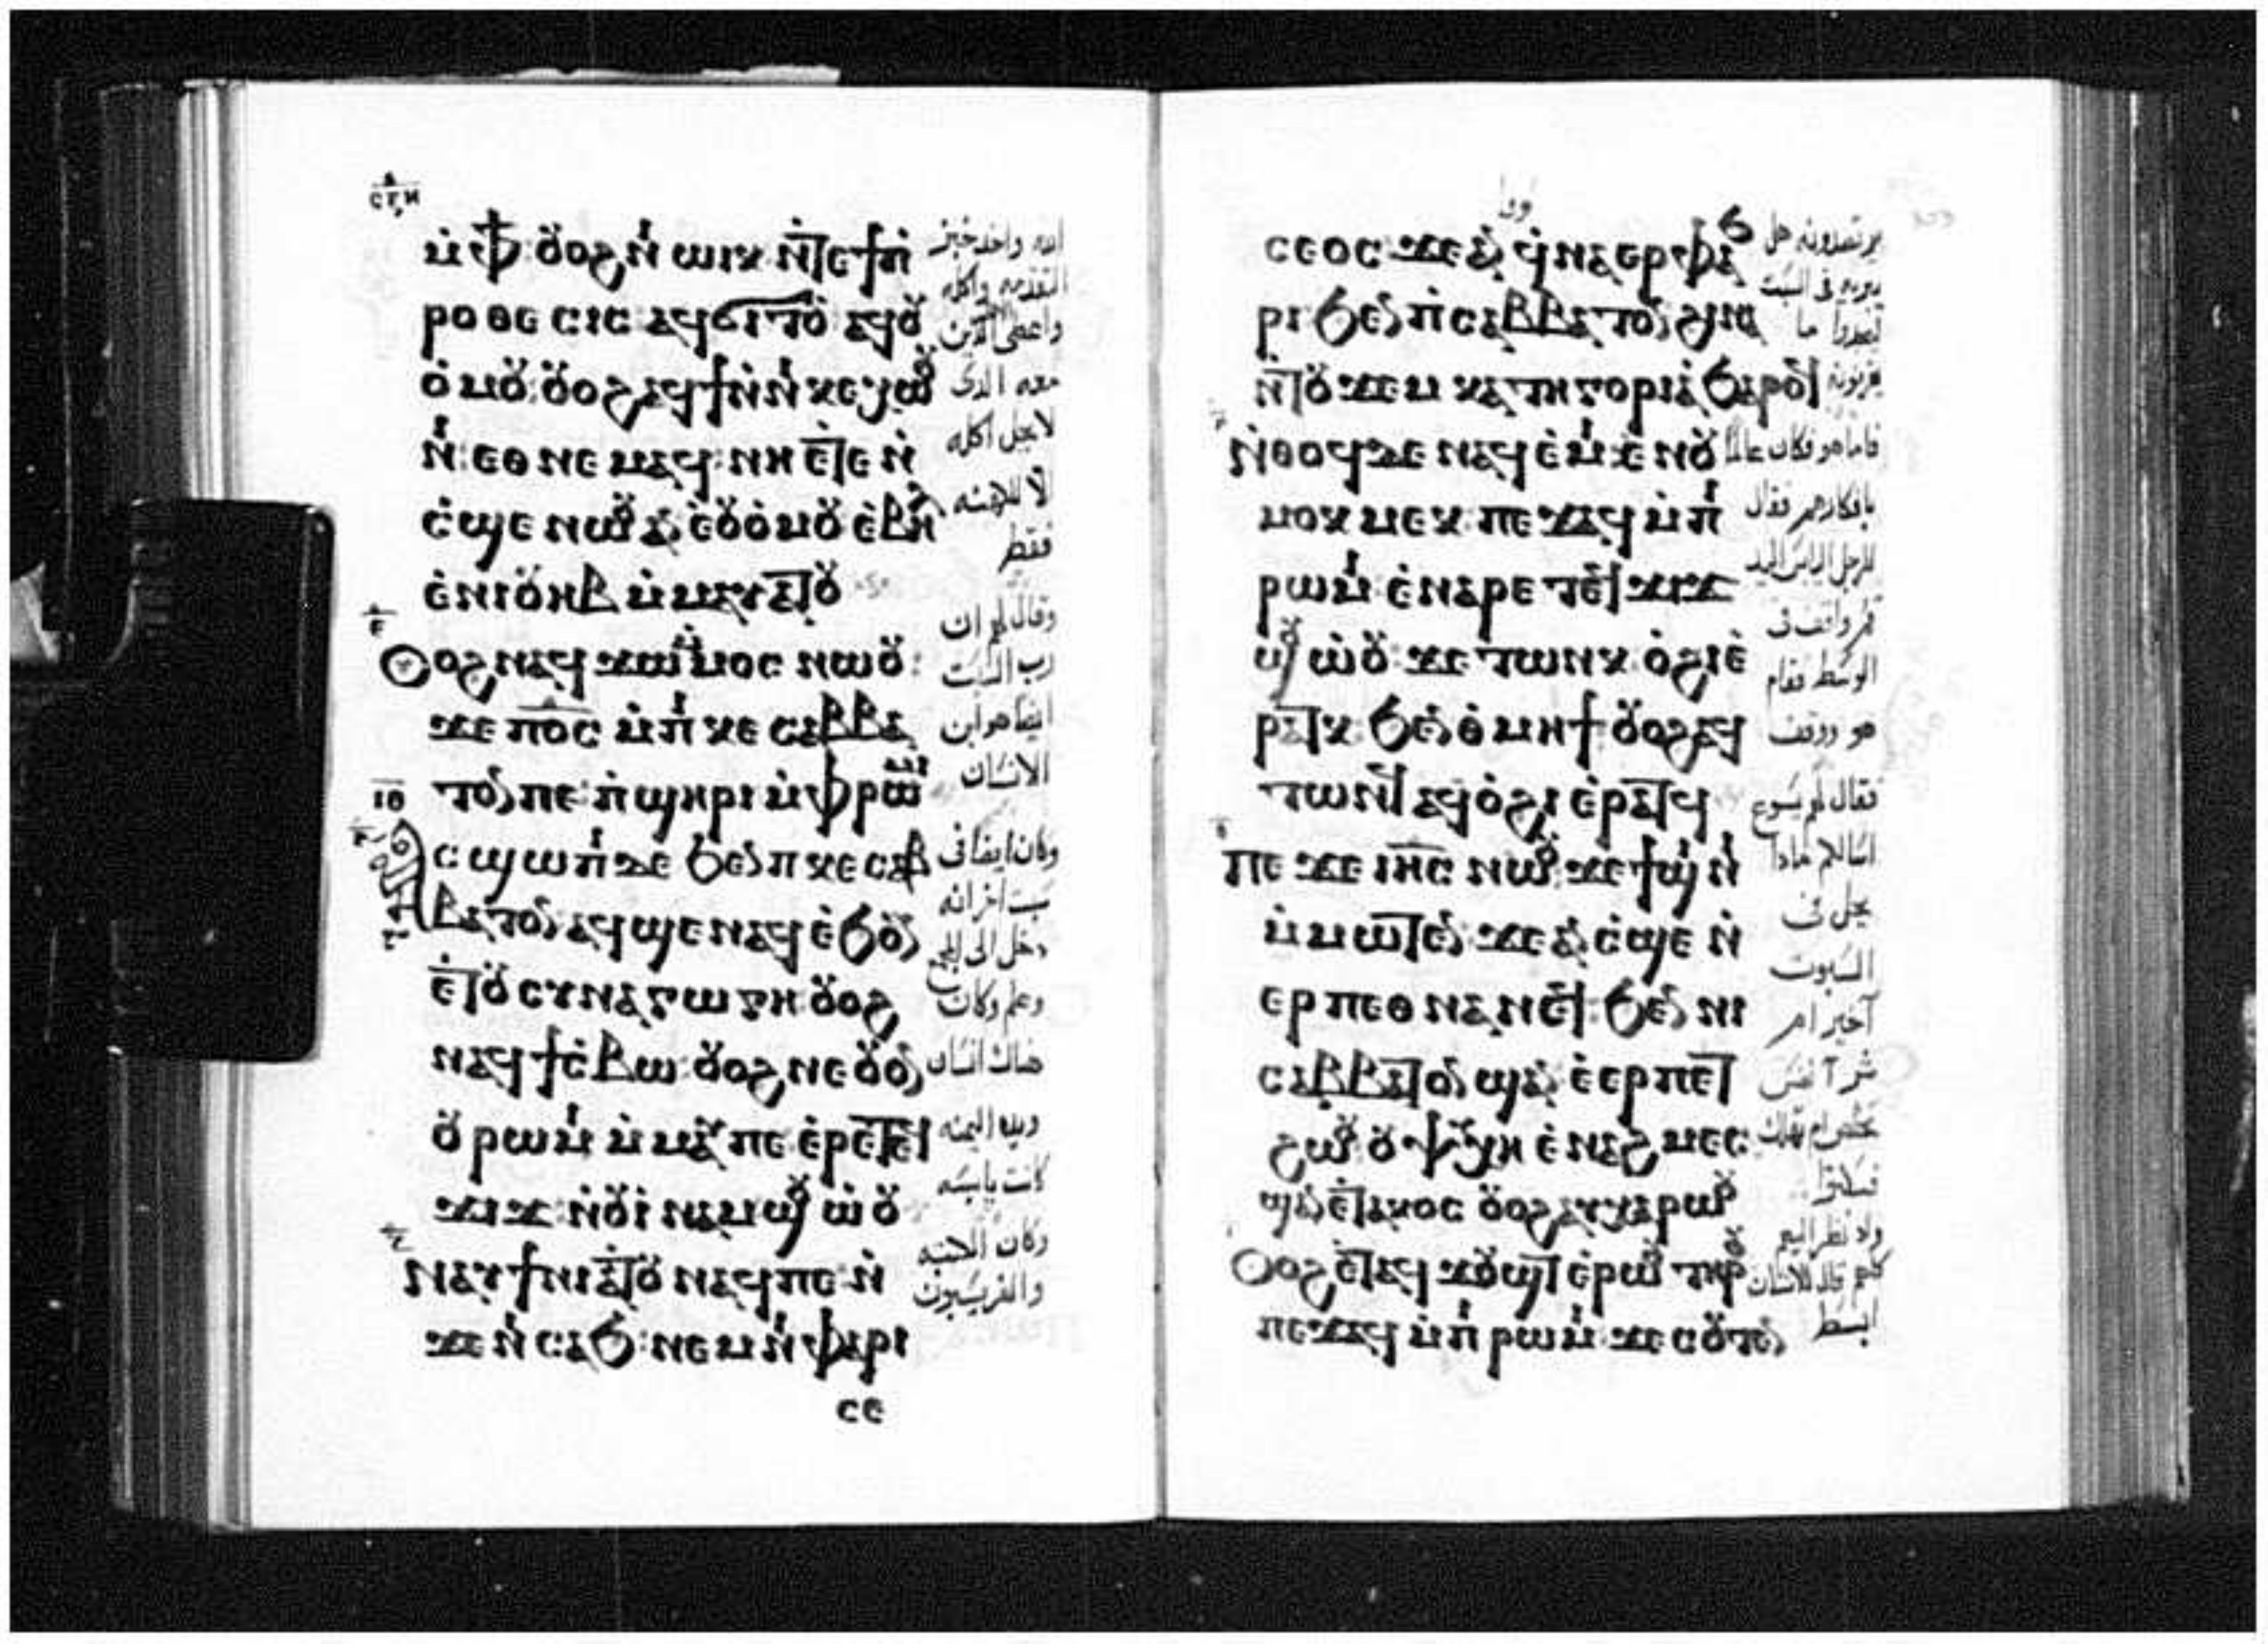 ⲥⲅⲏ
ⲙ̀ⲫϯ ⲟⲩⲟϩ ⲛⲓ ⲱⲓⲕ ⲛ̀ⲧⲉϯⲡ̀
ⲣⲟⲑⲉⲥⲓⲥ ⲁϥϭⲓⲧⲟⲩ ⲁϥⲟⲩ
ⲟ̀ⲙⲟⲩ ⲟⲩⲟϩ ⲁϥϯ ⲛ̀ⲛⲓⲕⲉⲭⲱⲟⲩ
ⲛⲓ ⲉⲑⲛⲉⲙⲁϥ ⲛⲏ ⲉ̀ⲧⲉ ⲛ̀
ⲥ̀ϣⲉ ⲛⲱⲟⲩ ⲁⲛ ⲉ̀ⲟⲩⲟ̀ⲙⲟⲩ ⲉ̀ⲃⲏⲗ
ⲉ̀ⲛⲓⲟⲩⲏⲃ ⲙ̀ⲙⲁⲩⲁⲧⲟⲩ
ⲟⲩⲟϩ ⲛⲁϥϫⲱ ⲙ̀ⲙⲟⲥ ⲛⲱⲟⲩ
ϫⲉ ⲡⲟ̅ⲥ̅ ⲙ̀ⲡⲓⲕⲉ ⲥⲁⲃⲃⲁ
ⲧⲟⲛ ⲡⲉ ⲡ̀ϣⲏⲣⲓ ⲙ̀ⲫⲣⲱⲙⲓ
ⲓⲑ
ⲁⲥϣⲱⲡⲓ ⲇⲉ ϧⲉⲛ ⲡⲕⲉⲥⲁⲃ
ⲃⲁⲧⲟⲛ ⲁϥϣⲉ ⲛⲁϥ ⲉ̀ϧⲟⲩⲛ
ⲉ̀ⲧⲟⲩⲥⲩⲛⲁⲅⲱⲅⲏ ⲟⲩⲟϩ
ⲛⲁϥϯⲥ̀ⲃⲱ ⲟⲩⲟϩ ⲛⲉ ⲟⲩⲟⲛ
ⲟⲩⲣⲱⲙⲓ ⲙ̀ⲙⲁⲩ ⲡⲉ ⲉ̀ⲣⲉ ⲧⲉϥ
ϫⲓϫ ⲛ̀ⲟⲩⲓ̀ⲛⲁⲙ ϣⲟⲩⲱ̀ⲟⲩ
ⲛⲁⲩϯⲛⲓⲁⲧⲟⲩ ⲛⲁϥ ⲡⲉ ⲛ̀
ϫⲉ ⲛⲓⲥⲁϧ ⲛⲉⲙ ⲛⲓⲫⲁⲣⲓ
ⲥⲉ
الله واخد خبز
التقدمه واكله
واعطى الذين
معه الذى
لا يحل اكله
الا للكهنه
فقط
وقال لهم ان
رب السبت
ايضا هو ابن
الانسان
وكان ايضا فى
سبت اخر انه
دخل الى المجمع
وعلم وكان
هناك انسان
ويده اليمنه
كانت يابسه
وكان الكتبه
والفريسيون
ⲥⲉⲟⲥ ϫⲉ ⲁⲛ ϥ̀ⲛⲁⲉⲣⲫⲁϧ
ⲣⲓ ϧⲉⲛ ⲡⲥⲁⲃⲃⲁⲧⲟⲛ ϩⲓⲛⲁ
ⲛ̀ⲧⲟⲩϫⲉⲙ ⲕⲁⲧⲏⲅⲟⲣⲓⲁ̀ ϧⲁⲣⲟϥ
ⲛ̀ⲑⲟϥ ⲇⲉ ⲛⲁϥⲉ̀ⲙⲓ ⲉ̀ⲛⲟⲩ
ⲙⲟⲕⲙⲉⲕ ⲡⲉϫⲁϥ ⲙ̀ⲡⲓ
ⲣⲱⲙⲓ ⲉ̀ⲛⲁⲣⲉ ⲧⲉϥϫⲓϫ
ϣⲟⲩⲱ̀ⲟⲩ ϫⲉ ⲧⲱⲛⲕ ⲟ̀ϩⲓ ⲉ̀
ⲣⲁⲧⲕ ϧⲉⲛ ⲑ̀ⲙⲏϯ ⲟⲩⲟϩ ⲁϥ
ⲧⲱⲛϥ ⲁϥⲟ̀ϩⲓ ⲉ̀ⲣⲁⲧϥ
ⲡⲉϫⲉ ⲓⲏ̅ⲥ̅ ⲛⲱⲟⲩ ϫⲉ ϯϣⲓⲛⲓ
ⲙ̀ⲙⲱⲧⲉⲛ ϫⲉ ⲁⲛ ⲥ̀ϣⲉ ⲛ̀
ⲉⲣⲡⲉⲑⲛⲁⲛⲉϥ ϧⲉⲛ ⲛⲓ
ⲥⲁⲃⲃⲁⲧⲟⲛ ϣⲁⲛ ⲉ̀ⲉⲣⲡⲉⲧ
ϩⲱⲟⲩ ⲟⲩⲯⲩⲭⲏ ⲉ̀ⲛⲁϩⲙⲉⲥ
ϣⲁⲛ ⲉ̀ⲧⲁⲕⲟⲥ ⲟⲩⲟϩ ⲁⲩⲭⲁⲣⲱⲟⲩ
ⲟⲩⲟϩ ⲉ̀ⲧⲁϥϫⲟⲩϣⲧ ⲉ̀ⲣⲱⲟⲩ ⲧⲏⲣⲟⲩ
ⲡⲉϫⲁϥ ⲙ̀ⲡⲓⲣⲱⲙⲓ ϫⲉ ⲥⲟⲩⲧⲉⲛ
يرتصدونه هل
يبريه فى السبت
ليجدوا ما
يقرفونه
فاما هو فكان عالما
بافكارهم فقال
للرجل اليابس اليد
قم واقف فى
الوسط فقام
هو ووقف
فقال لهم يسوع
اسالكم ماذا
يحل فى
السبوت
آخير ام
شر آ نفس
تخلص ام تهلك
فسكتوا
ولا نظر اليهم
كلهم قال للانسان
ابسط